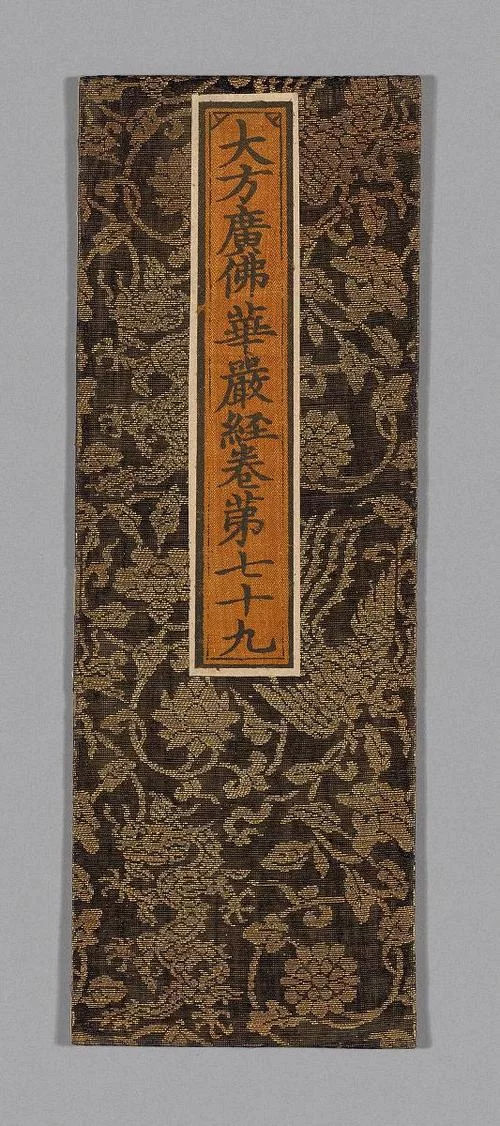 大方廣佛華嚴経卷苐七十九